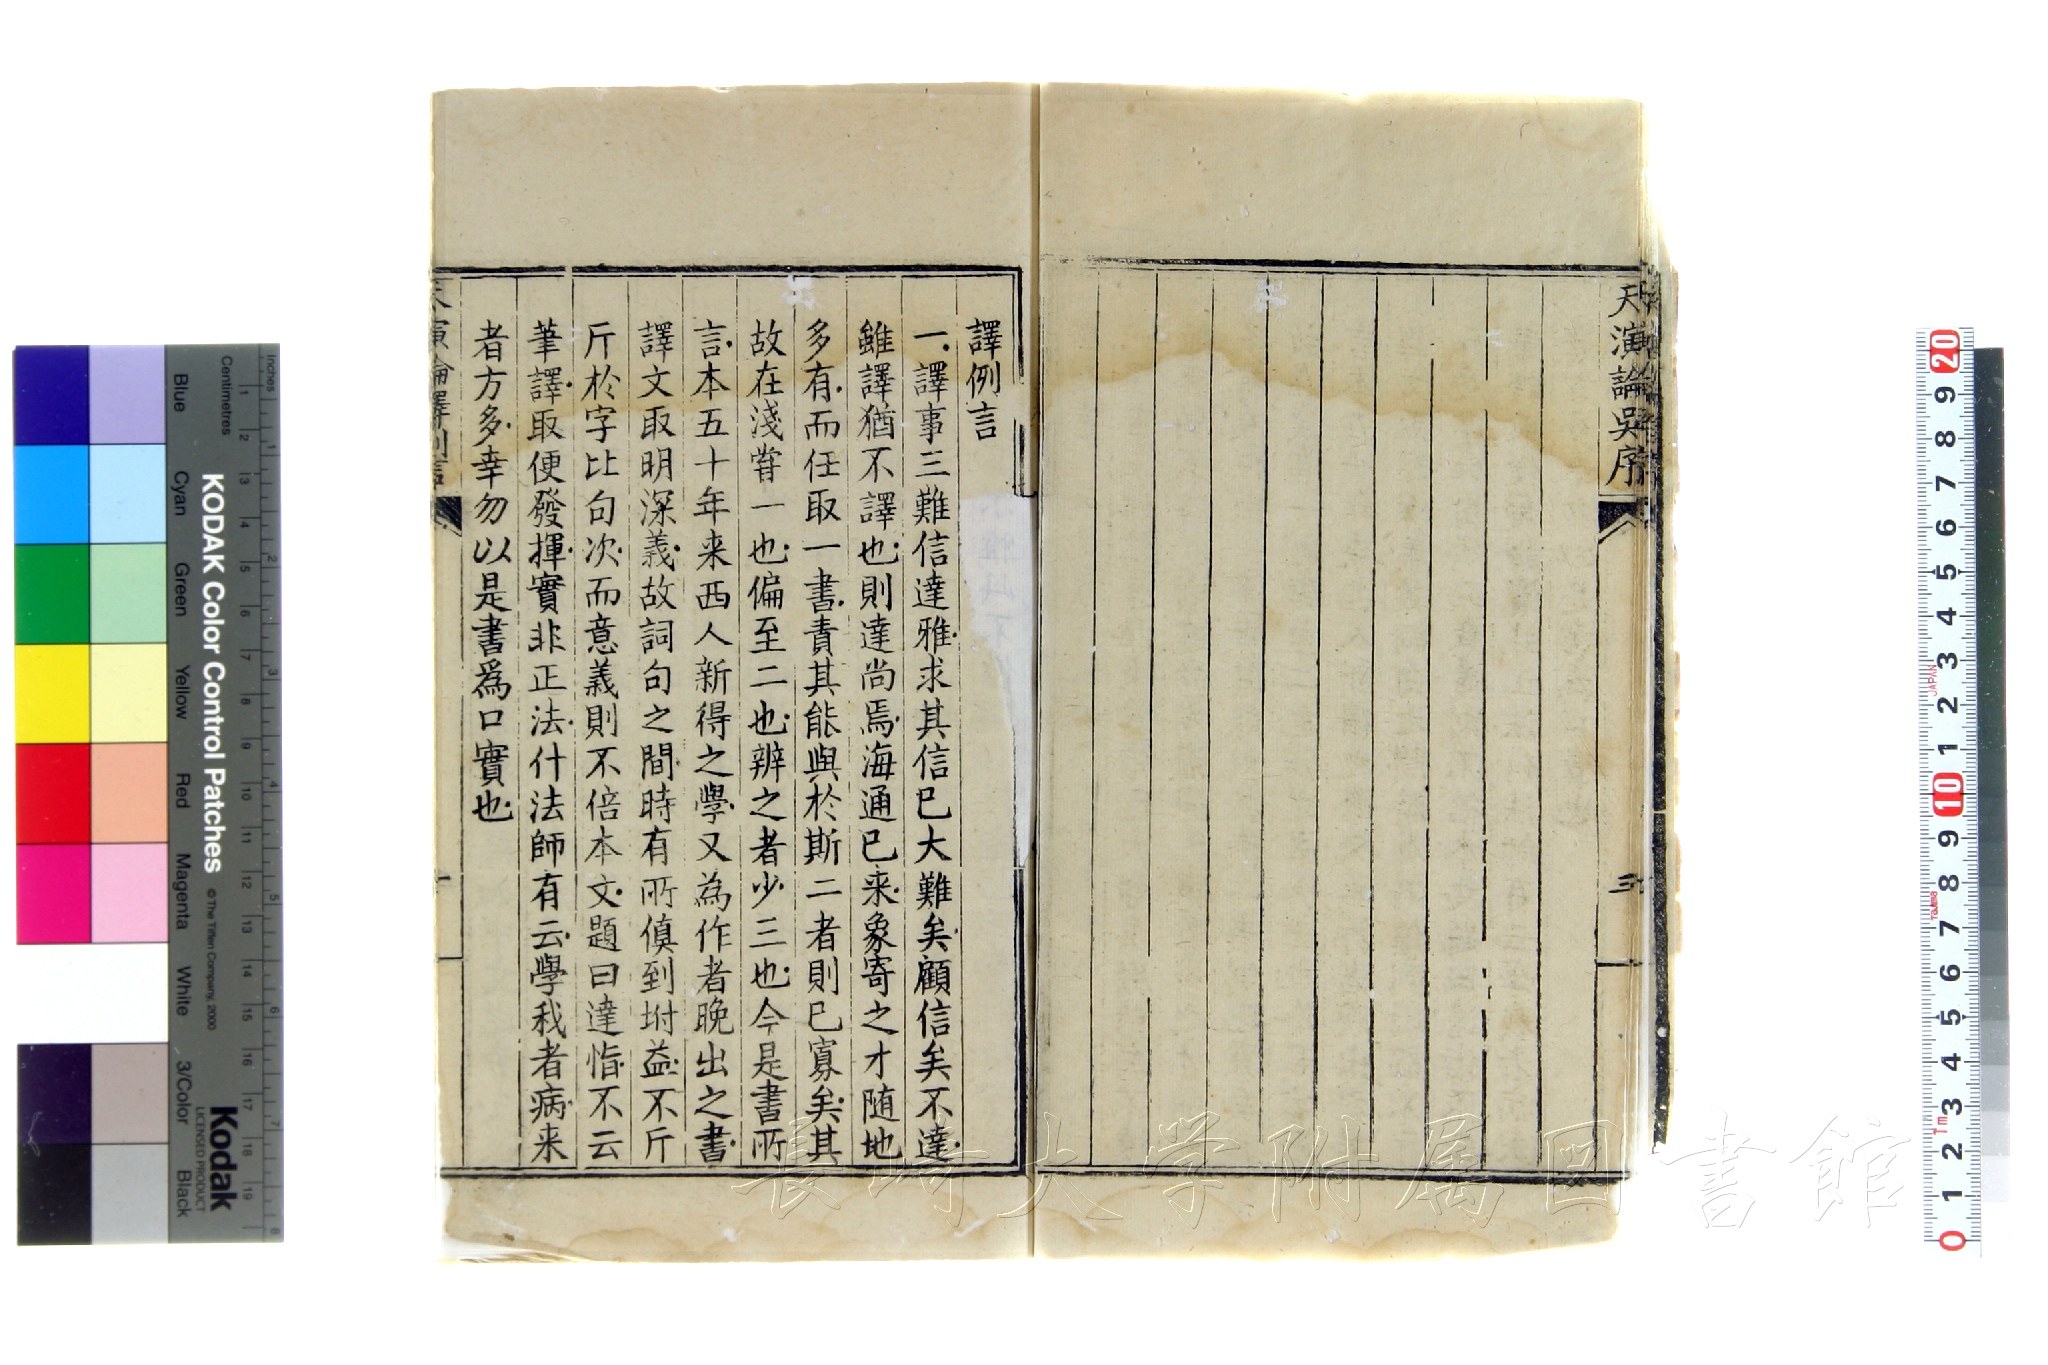 天演論吳序
三
譯例言
一、譯事三難信達雅求其信已大難矣顧信矣不達
雖譯猶不譯也則達尚焉海通已来象寄之才随地
多有而任取一書責其能與於斯二者則已寡矣其
故在淺嘗一也偏至二也辨之者少三也今是書所
言本五十年来西人新得之學又為作者晚出之書
譯文取明深義故詞句之間時有所傎到坿益不斤
斤於字比句次而意義則不倍本文題曰達恉不云
筆譯取便發揮實非正法什法師有云學我者病来
者方多幸勿以是書爲口實也
長崎大学附属図書館
Inches
Centimetres
KODAK Color Control Patches
© The Tiffen Company, 2000
Kodak
LICENSED PRODUCT
Blue
Cyan
Green
Yellow
Red
Magenta
White
3/Color
Black
JAPAN
Tajima